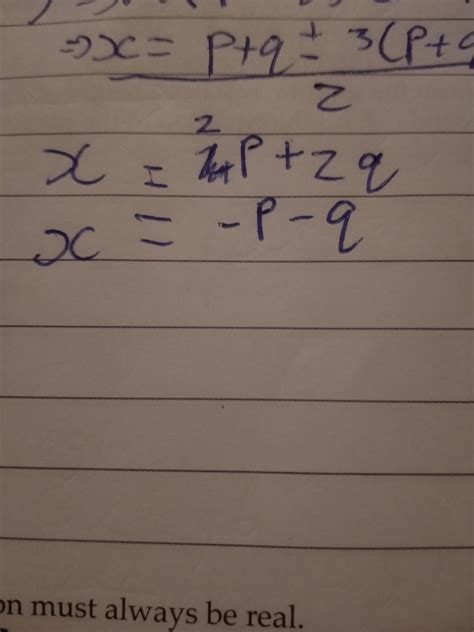 ⇒ x = p+q ± 3(p+q
2
x = 2p + 2q
x = -p - q
on must always be real.